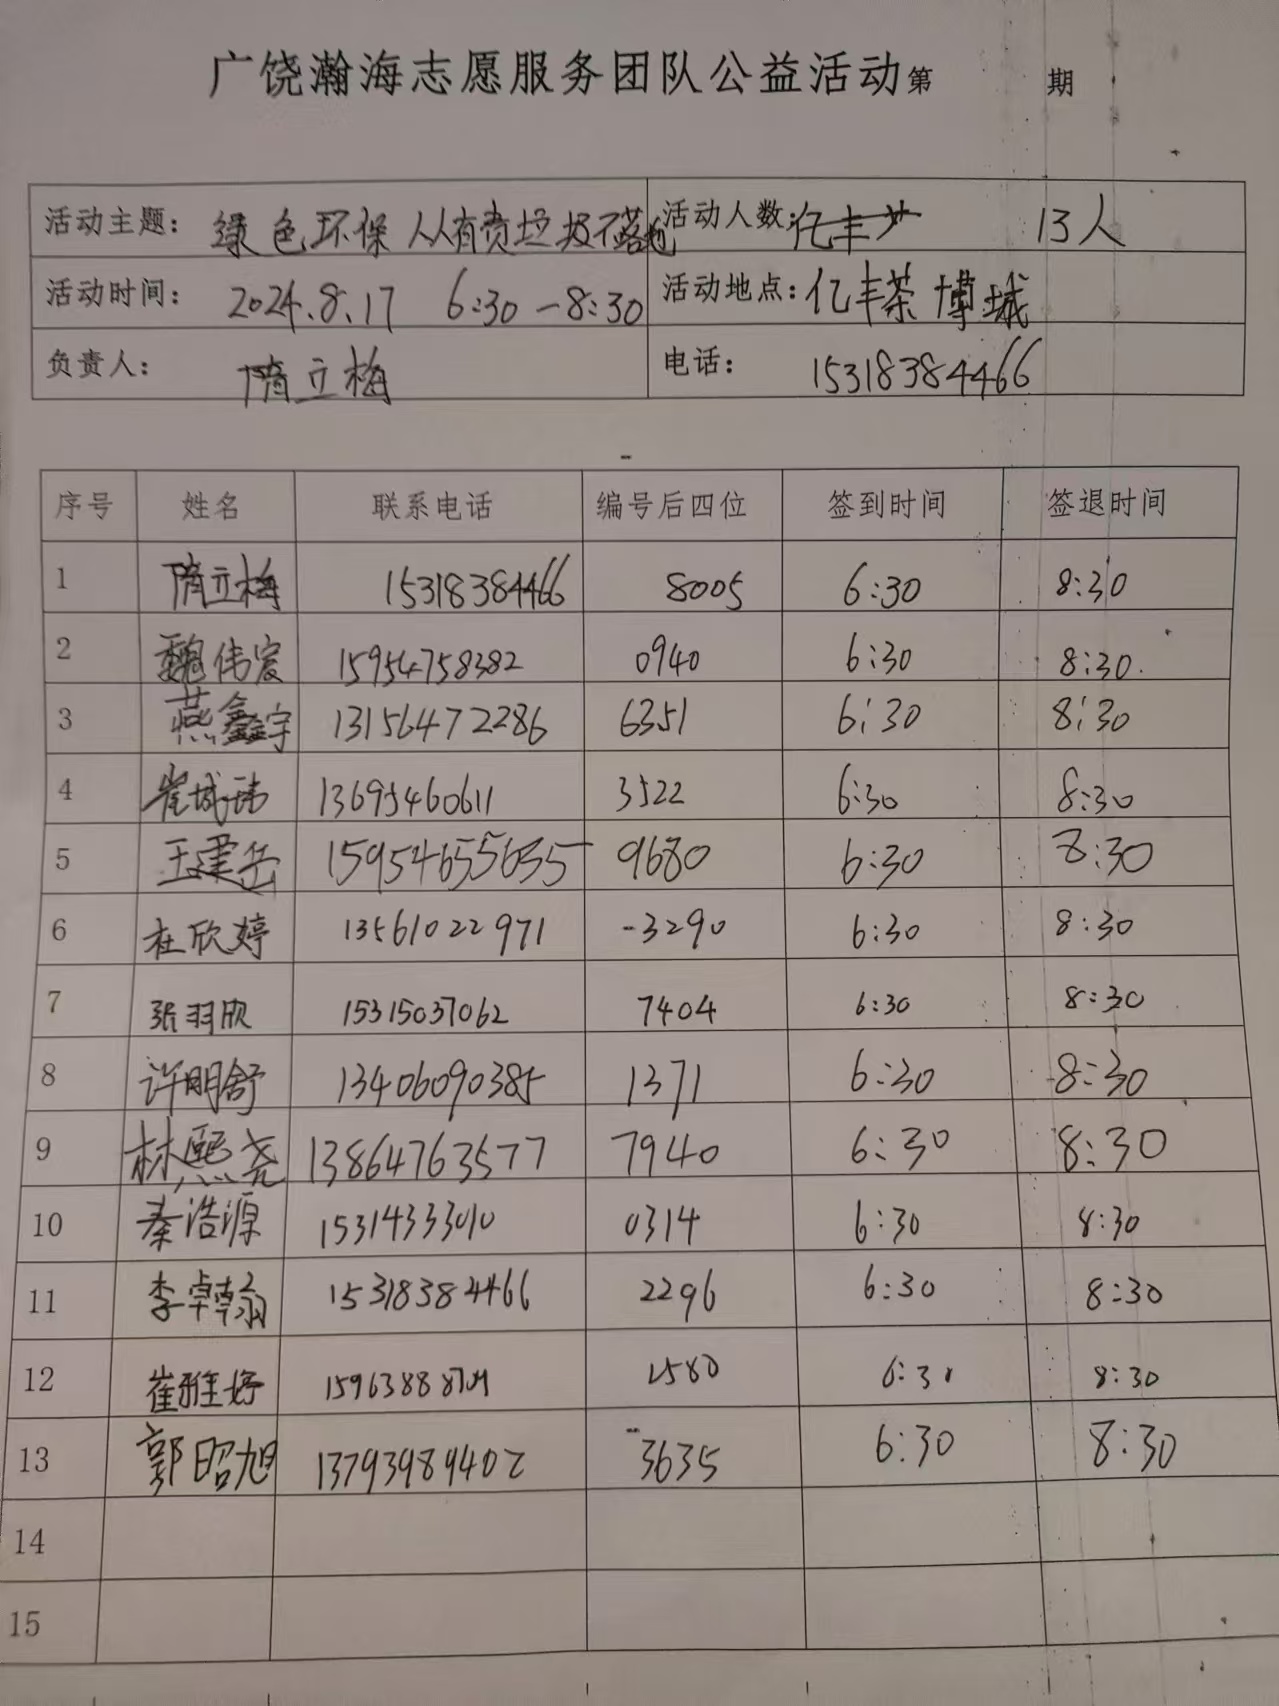 广饶瀚海志愿服务团队公益活动第 期
活动主题: 绿色环保 人人有责垃圾不落地 活动人数: 13人
活动时间: 2024.8.17 6:30-8:30 活动地点: 亿丰茶博城
负责人: 隋立梅 电话: 15318384466
序号 姓名 联系电话 编号后四位 签到时间 签退时间
1 隋立梅 15318384466 8005 6:30 8:30
2 魏伟宸 15954758382 0940 6:30 8:30
3 燕鑫宇 13156472286 6351 6:30 8:30
4 崔城玮 13695460611 3522 6:30 8:30
5 王建岳 15954655635 9680 6:30 8:30
6 杜欣婷 13561022971 -3290 6:30 8:30
7 张羽欣 15315037062 7404 6:30 8:30
8 许明舒 13406090385 1371 6:30 8:30
9 林熙尧 13864763577 7940 6:30 8:30
10 秦浩源 15314333010 0314 6:30 8:30
11 李卓翰 15318384466 2296 6:30 8:30
12 崔雅婷 1580 6:30 8:30
13 郭昭旭 13793989402 3635 6:30 8:30
14
15